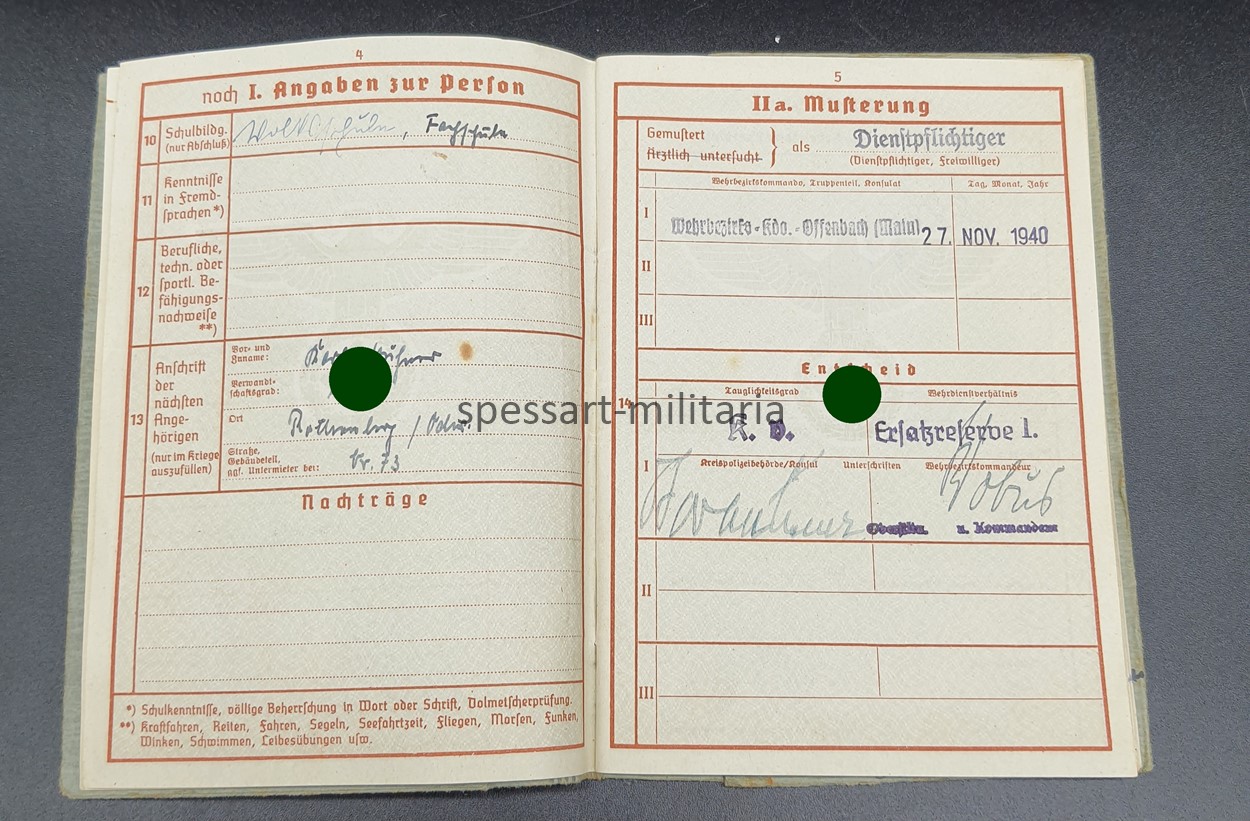 4
noch I. Angaben zur Person
10 Schulbildg.
(nur Abschluß)
Volksschule, Fachschule
11 Kenntnisse
in Fremd-
sprachen*)
12 Berufliche,
techn. oder
sportl. Be-
fähigungs-
nachweise
**)
13 Anschrift
der
nächsten
Ange-
hörigen
(nur im Kriege
auszufüllen)
Vor- und
Zuname:
Verwandt-
schaftsgrad:
Ort
Rothenberg / Odw.
Straße,
Gebäudeteil,
ggf. Untermieter bei:
Nr. 73
Nachträge
*) Schulkenntnisse, völlige Beherrschung in Wort oder Schrift, Dolmetscherprüfung.
**) Kraftfahren, Reiten, Fahren, Segeln, Seefahrtzeit, Fliegen, Morsen, Funken,
Winken, Schwimmen, Leibesübungen usw.
5
IIa. Musterung
Gemustert
Ärztlich untersucht
als Dienstpflichtiger
(Dienstpflichtiger, Freiwilliger)
Wehrbezirkskommando, Truppenteil, Konsulat Tag, Monat, Jahr
I Wehrbezirks-Kdo.-Offenbach (Main) 27. NOV. 1940
II
III
14
Entscheid
Tauglichkeitsgrad Wehrdienstverhältnis
K. v. Ersatzreserve I.
I Kreispolizeibehörde/Konsul Unterschriften Wehrbezirkskommandeur
Oberstltn. u. Kommandeur
II
III
spessart-militaria